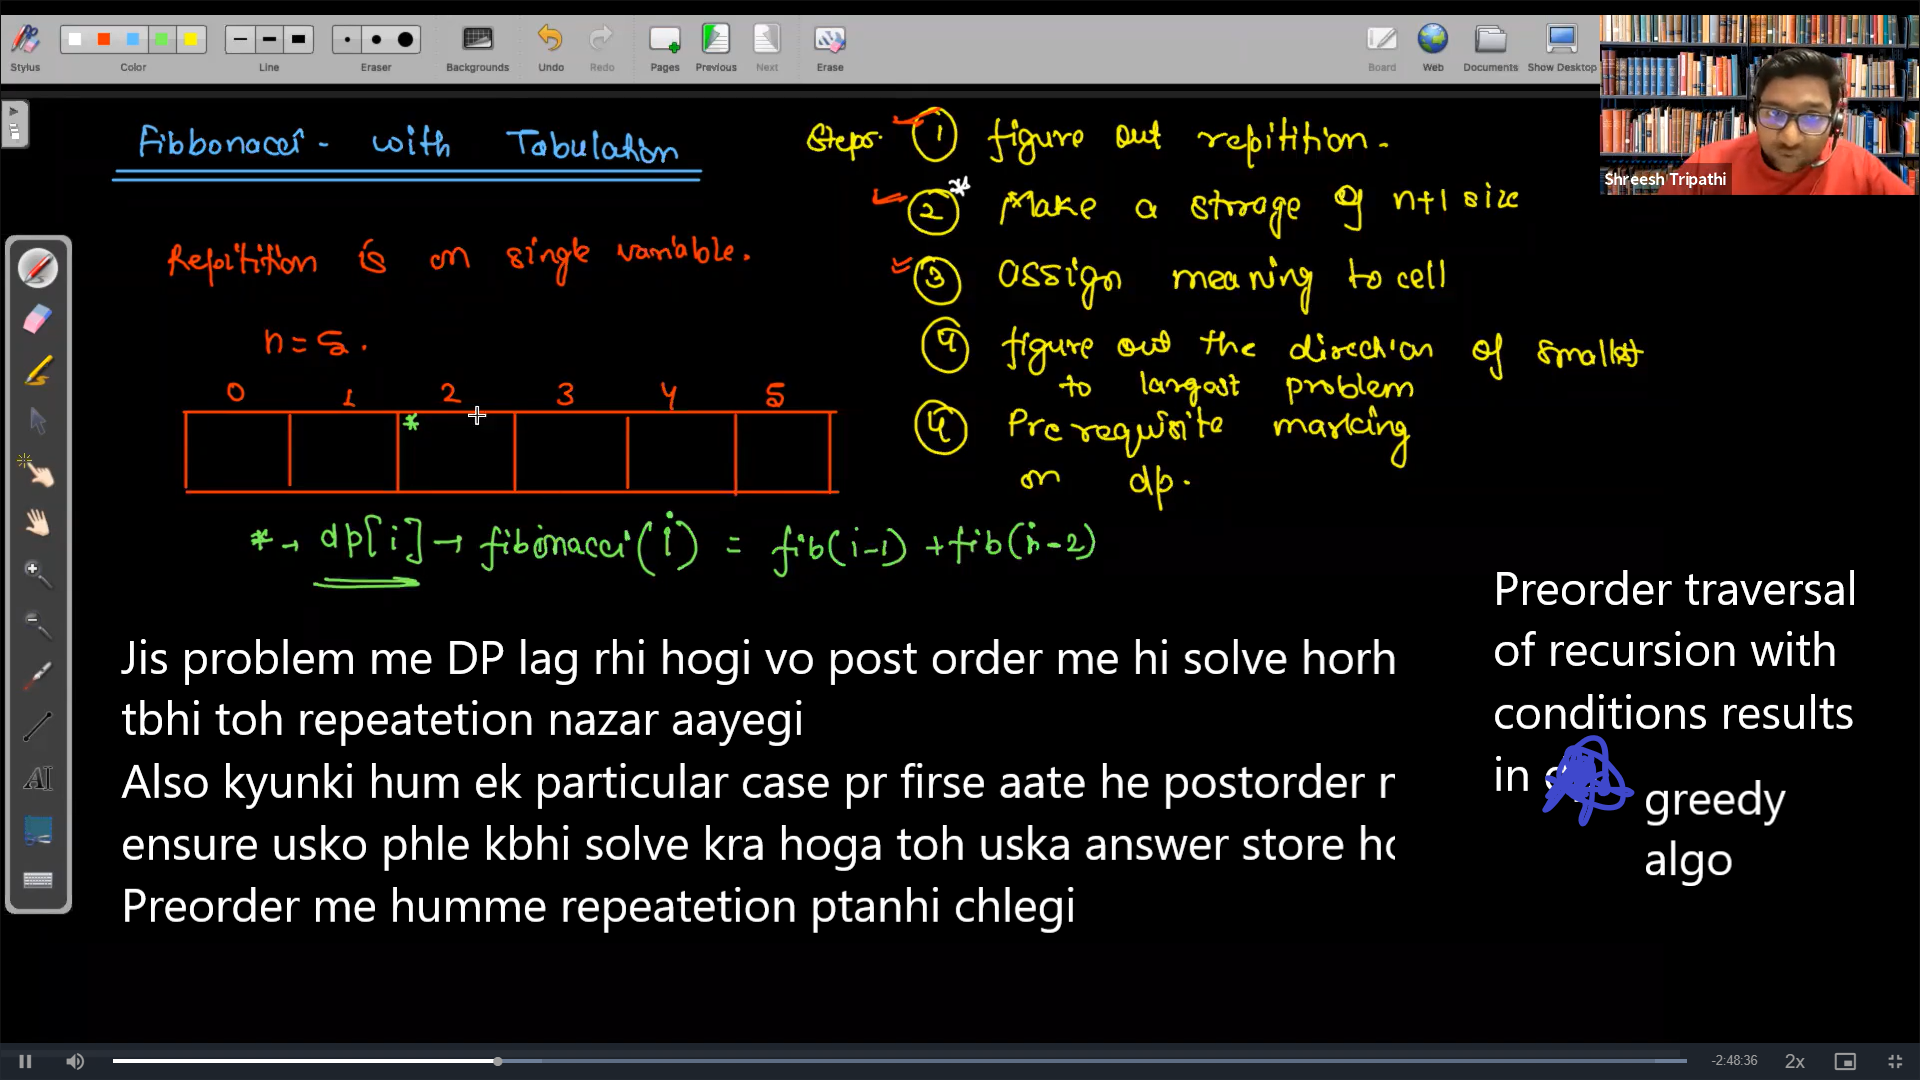 Stylus
Color
Line
Eraser
Backgrounds
Undo
Redo
Pages
Previous
Next
Erase
Board
Web
Documents
Show Desktop
Shreesh Tripathi
Fibbonacci - with Tabulation
Repitition is on single variable.
n = 5.
0 1 2 3 4 5
*
* → dp[i] → fibonacci(i) = fib(i-1) + fib(i-2)
Steps. 1 figure out repitition.
2 * Make a storage of n+1 size
3 assign meaning to cell
4 figure out the direction of smallest
to largest problem
4 Prerequisite marking
on dp.
Jis problem me DP lag rhi hogi vo post order me hi solve horh
tbhi toh repeatetion nazar aayegi
Also kyunki hum ek particular case pr firse aate he postorder
ensure usko phle kbhi solve kra hoga toh uska answer store
Preorder me humme repeatetion ptanhi chlegi
Preorder traversal
of recursion with
conditions results
in
greedy
algo
AI
-2:48:36
2x